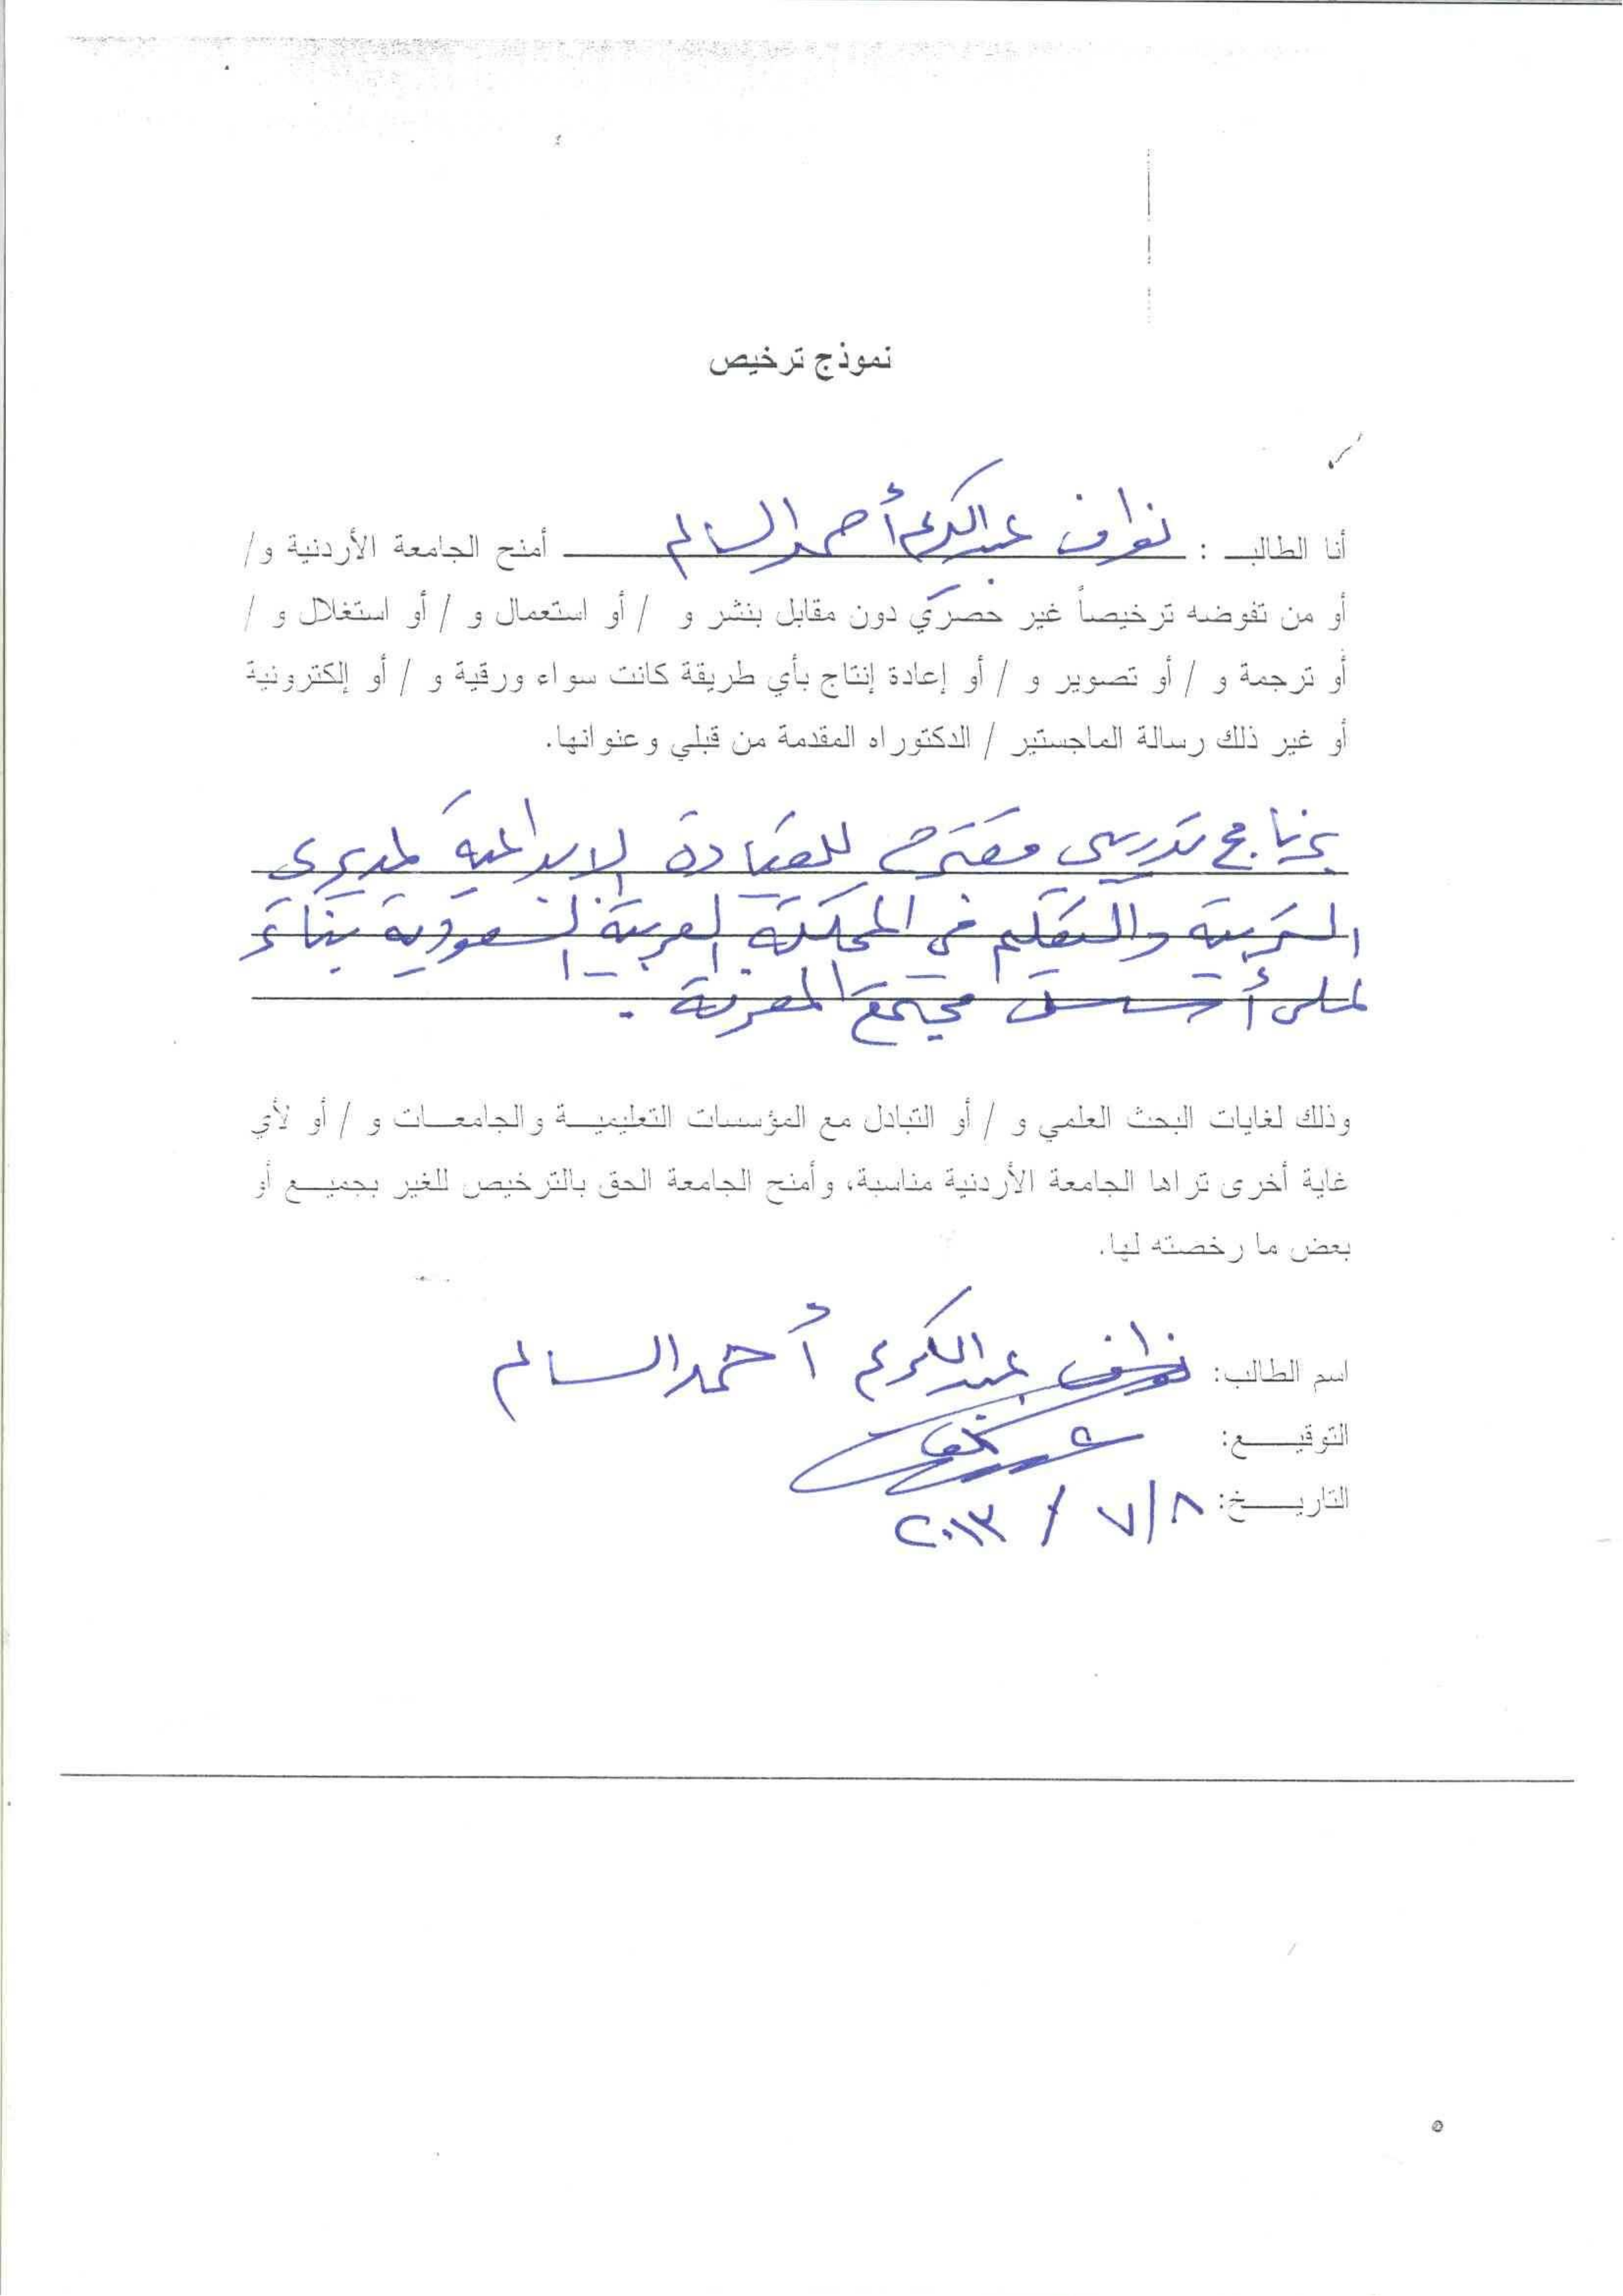 نموذج ترخيص
أنا الطالب : نواف عبدالكريم أحمد السالم أمنح الجامعة الأردنية و/
أو من تفوضه ترخيصاً غير حصري دون مقابل بنشر و / أو استعمال و / أو استغلال و /
أو ترجمة و / أو تصوير و / أو إعادة إنتاج بأي طريقة كانت سواء ورقية و / أو إلكترونية
أو غير ذلك رسالة الماجستير / الدكتوراه المقدمة من قبلي وعنوانها.
برنامج تدريبي مقترح للقيادة الابداعية لمديري
التربية والتعليم في المملكة العربية السعودية بناءً
على أسس مجتمع المعرفة .
وذلك لغايات البحث العلمي و / أو التبادل مع المؤسسات التعليمية والجامعات و / أو لأي
غاية أخرى تراها الجامعة الأردنية مناسبة، وأمنح الجامعة الحق بالترخيص للغير بجميع أو
بعض ما رخصته لها.
اسم الطالب: نواف عبدالكريم أحمد السالم
التوقيع:
التاريخ: ٨/٧ / ٢٠١٣